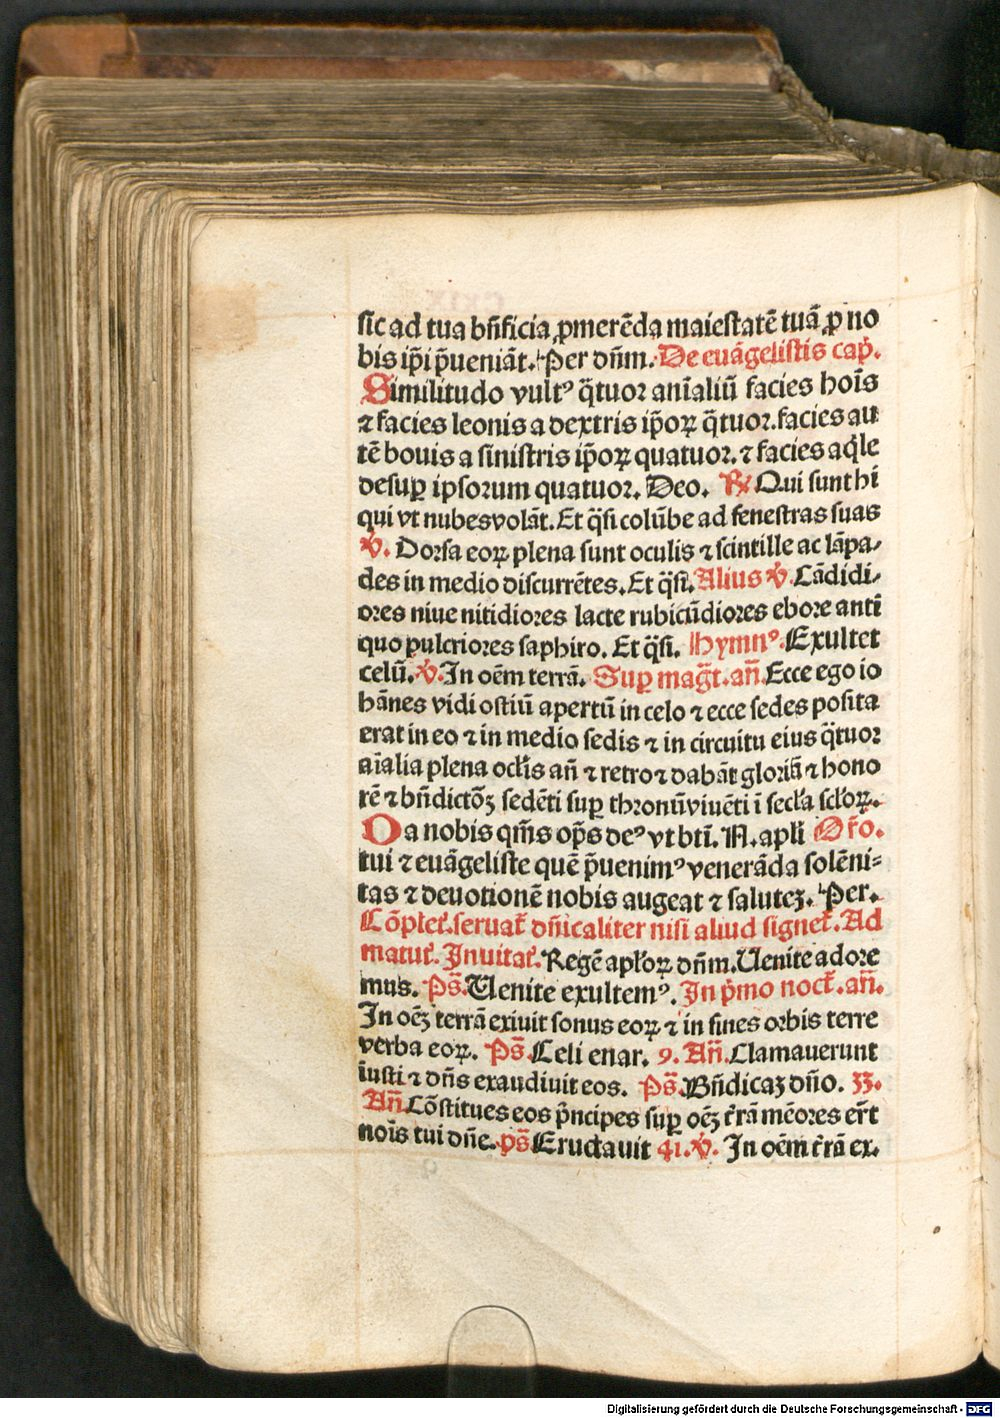 sic ad tua bn̄ficia ꝓmerēda maiestatē tuā ꝓ no
bis ip̄i p̄ueniāt. Per dn̄m. De euāgelistis cap̄.
Similitudo vultꝰ q̄tuor anīaliū facies hoīs
⁊ facies leonis a dextris ip̄oꝝ q̄tuor. facies au
tē bouis a sinistris ip̄oꝝ quatuor. ⁊ facies aq̄le
desuꝑ ipsorum quatuor. Deo. ℟ Qui sunt hī
qui vt nubes volāt. Et q̄si colūbe ad fenestras suas
℣. Dorsa eoꝝ plena sunt oculis ⁊ scintille ac lāpa⸗
des in medio discurrētes. Et q̄si. Alius ℣. Cādidi⸗
ores niue nitidiores lacte rubicūdiores ebore antī
quo pulcriores saphiro. Et q̄si. Hymnꝰ. Exultet
celū. ℣. In oēm terrā. Suꝑ maḡt. an̄. Ecce ego io
hānes vidi ostiū apertū in celo ⁊ ecce sedes posita
erat in eo ⁊ in medio sedis ⁊ in circuitu eius q̄tuor
aīalia plena ocl̄is an̄ ⁊ retro ⁊ dabāt gloriā ⁊ hono
rē ⁊ bn̄dictōꝫ sedēti suꝑ thronū viuēti ī secl̄a scl̄oꝝ.
Da nobis qm̄s op̄s deꝰ vt btī. N. apl̄i Or̄o.
tui ⁊ euāgeliste quē p̄uenimꝰ venerāda solēni⸗
tas ⁊ deuotionē nobis augeat ⁊ saluteꝫ. Per.
Cōplet̄. seruat̄ dn̄icaliter nisi aliud signet̄. Ad
matut̄. Inuitat̄. Regē apl̄oꝝ dn̄m. Uenite adore
mus. Ps̄. Uenite exultemꝰ. In p̄mo noct̄. an̄.
In oēꝫ terrā exiuit sonus eoꝝ ⁊ in fines orbis terre
verba eoꝝ. Ps̄. Celi enar. 9. An̄. Clamauerunt
iusti ⁊ dn̄s exaudiuit eos. Ps̄. Bn̄dicaꝫ dn̄o. 33.
An̄. Cōstitues eos p̄ncipes suꝑ oēꝫ t̄rā mēores er̄t
noīs tui dn̄e. ps̄ Eructauit 41. ℣. In oēm t̄rā ex.
Digitalisierung gefördert durch die Deutsche Forschungsgemeinschaft - DFG